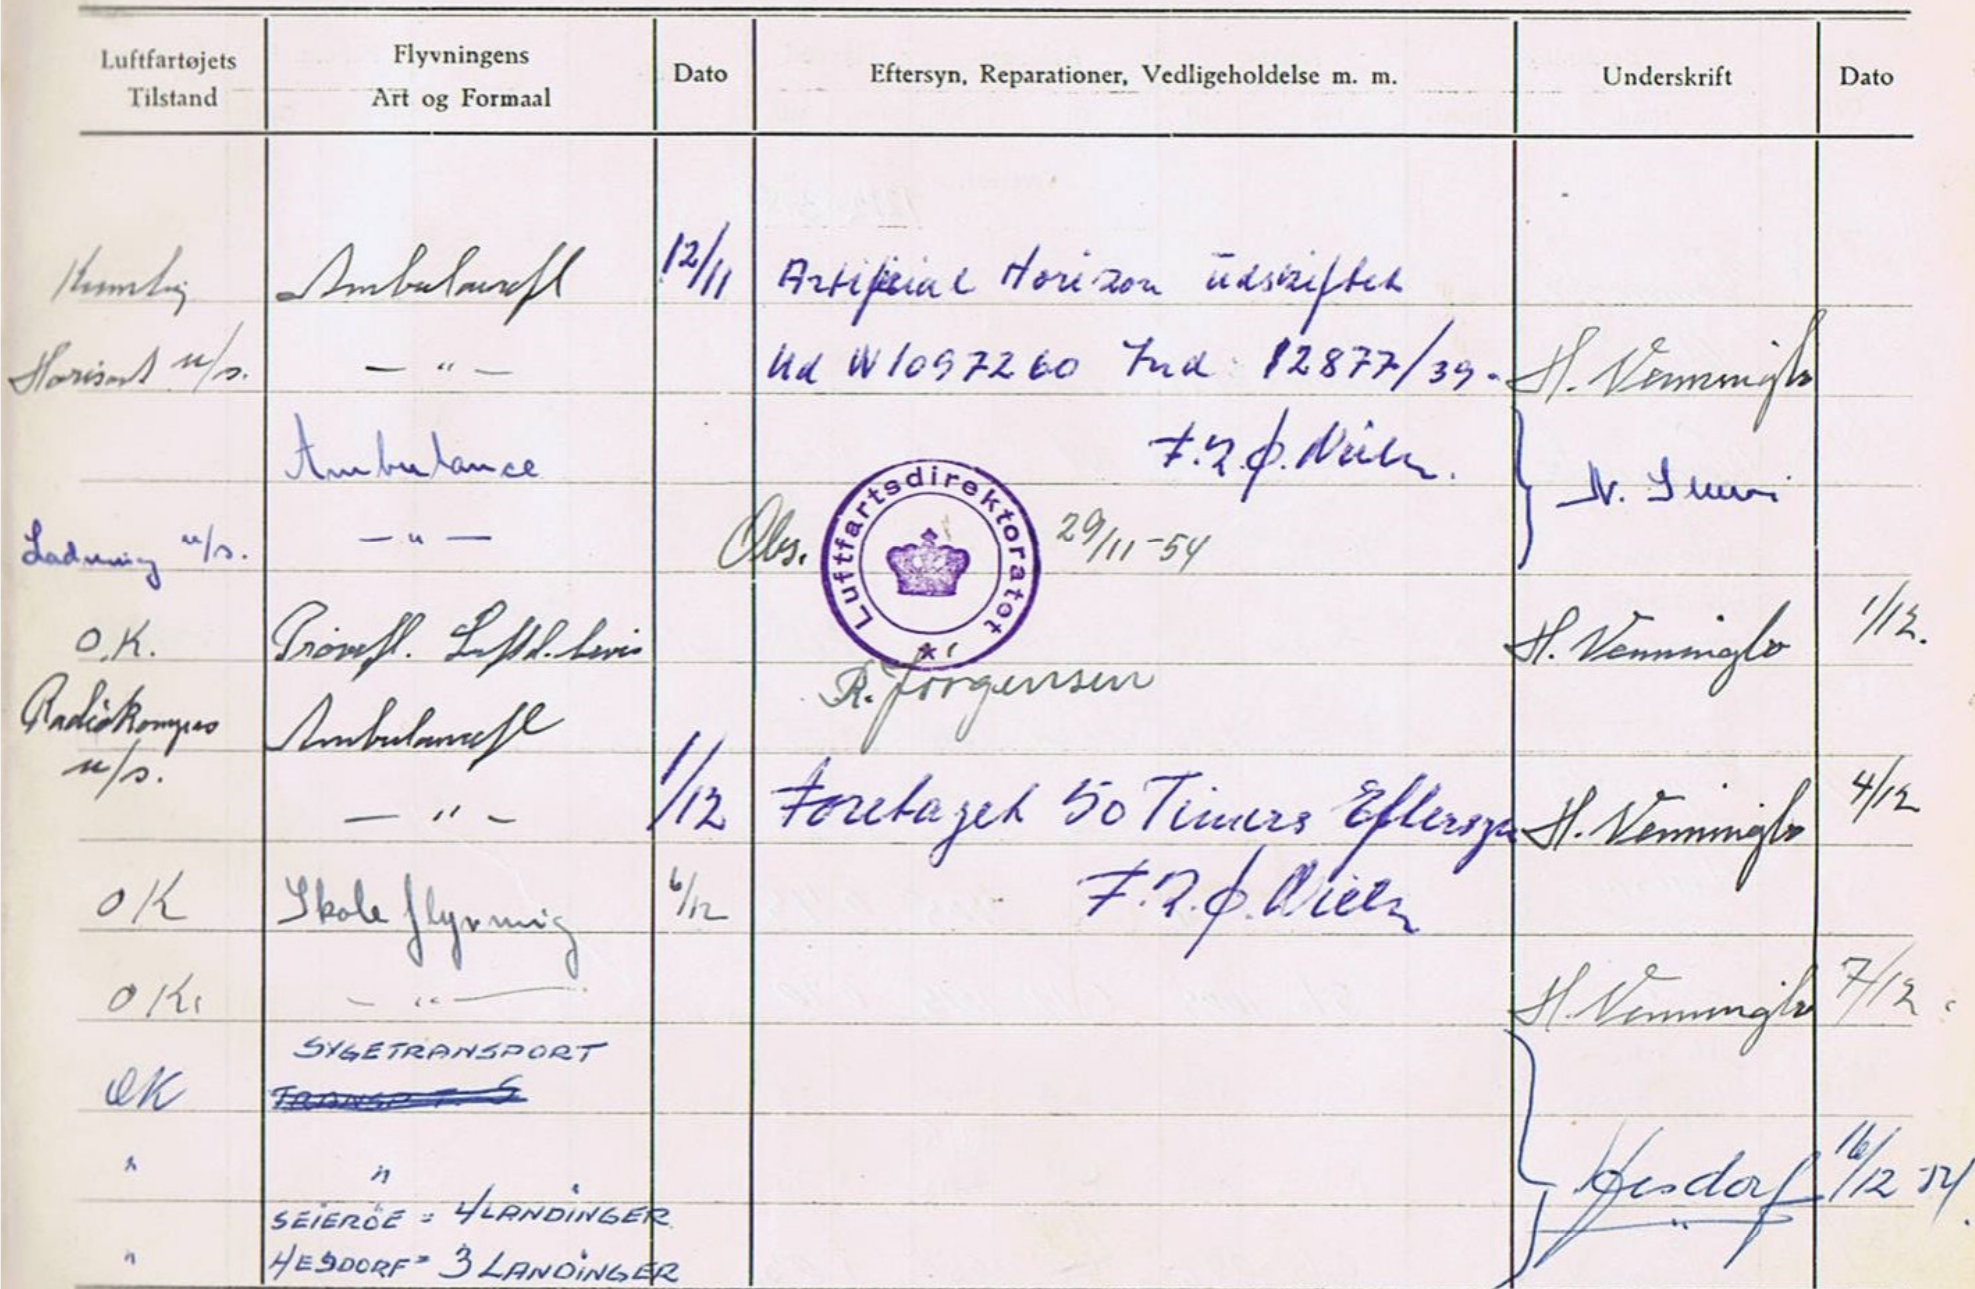 Luftfartøjets Tilstand
Flyvningens Art og Formaal
Dato
Eftersyn, Reparationer, Vedligeholdelse m. m.
Underskrift
Dato
Ambulancefl 12/11 Artificial Horizon udskiftet
Horisont u/s. — " — Ud W1097260 Ind 12877/39. H. Venningbo
Ambulance
Ladning u/s. — " — Obs. Luftfartsdirektoratet 29/11-54
O.K. Prøvefl. Luftd.bevis H. Venningbo 1/12.
R. Jørgensen
Radiokompas Ambulancefl
u/s.
— " — 1/12 Foretaget 50 Timers Eftersyn H. Venningbo 4/12
OK Skoleflyvning 6/12
OK. — " — H. Venningbo 7/12.
SYGETRANSPORT
OK
" " Hesdorf 16/12-54.
SEIERÖE = 4 LANDINGER
" HESDORF = 3 LANDINGER